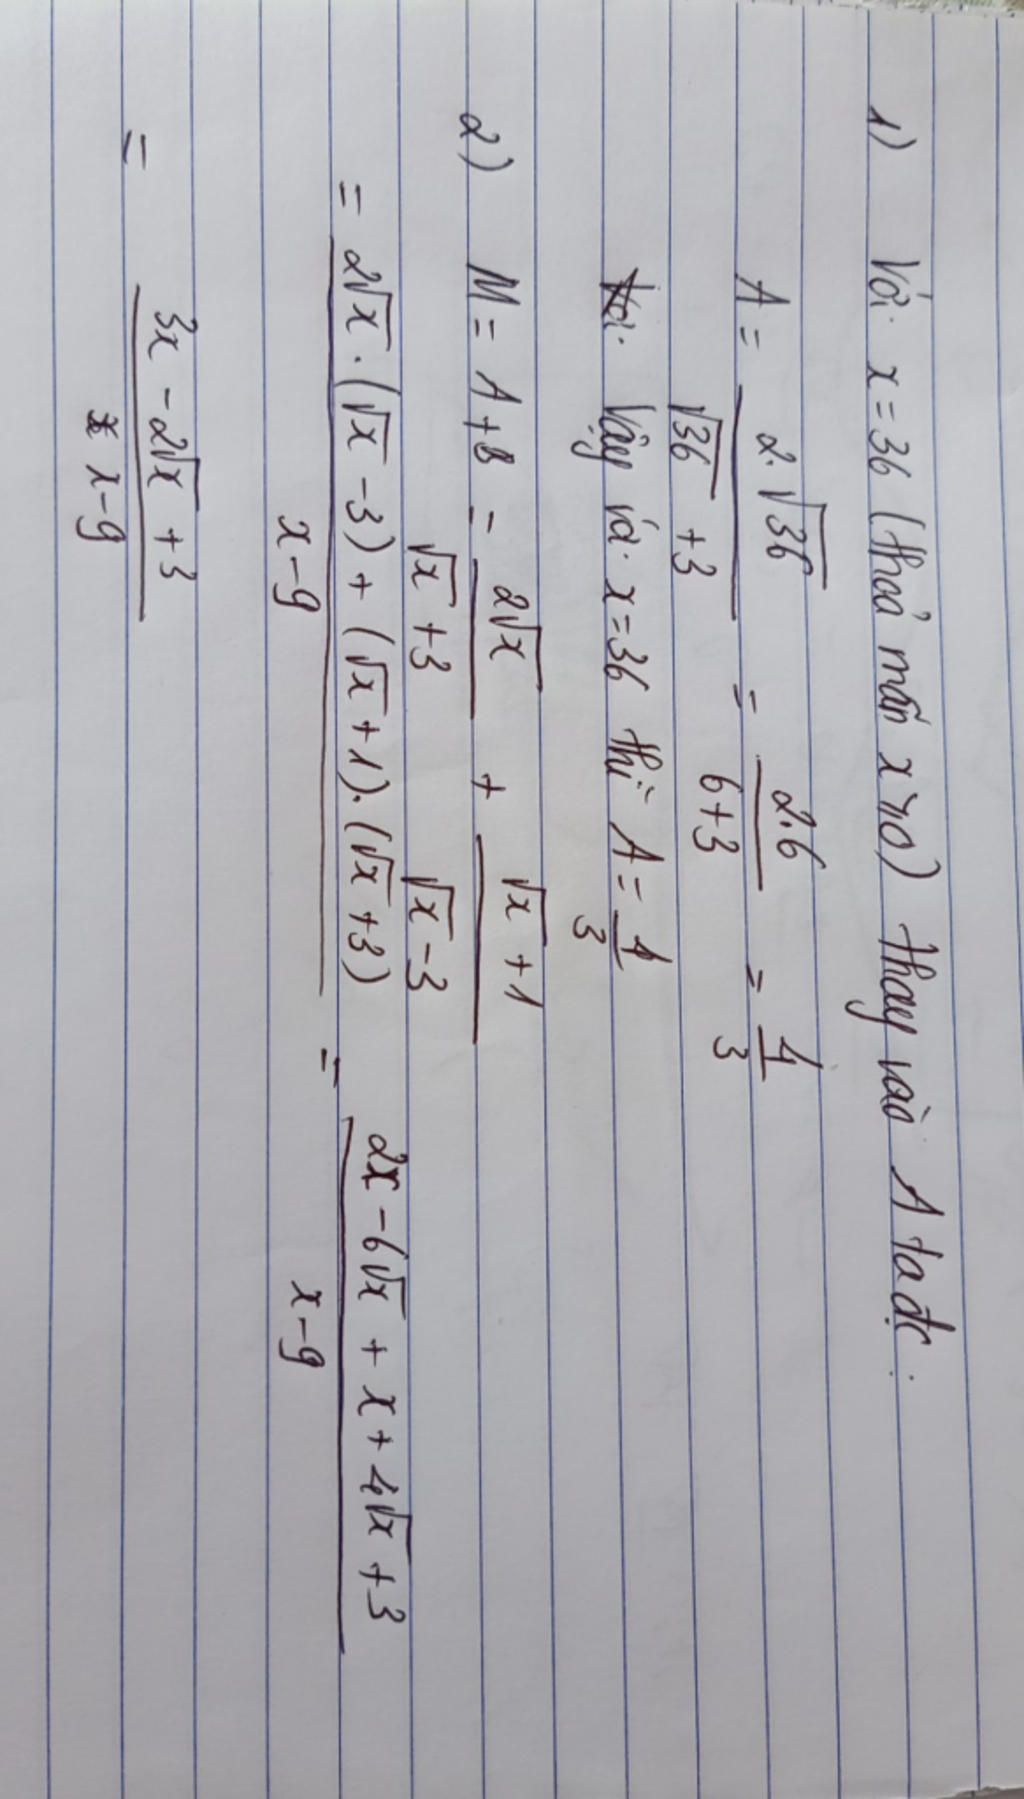 1) Với x = 36 (thoả mãn x>0) thay vào A ta đc :
A = 2.√36 / √36 + 3 = 2.6 / 6+3 = 4/3
Vậy với x = 36 thì A = 4/3
2) M = A + B = 2√x / √x + 3 + √x + 1 / √x - 3
= 2√x . (√x - 3) + (√x + 1). (√x + 3) / x - 9 = 2x - 6√x + x + 4√x + 3 / x - 9
= 3x - 2√x + 3 / x - 9